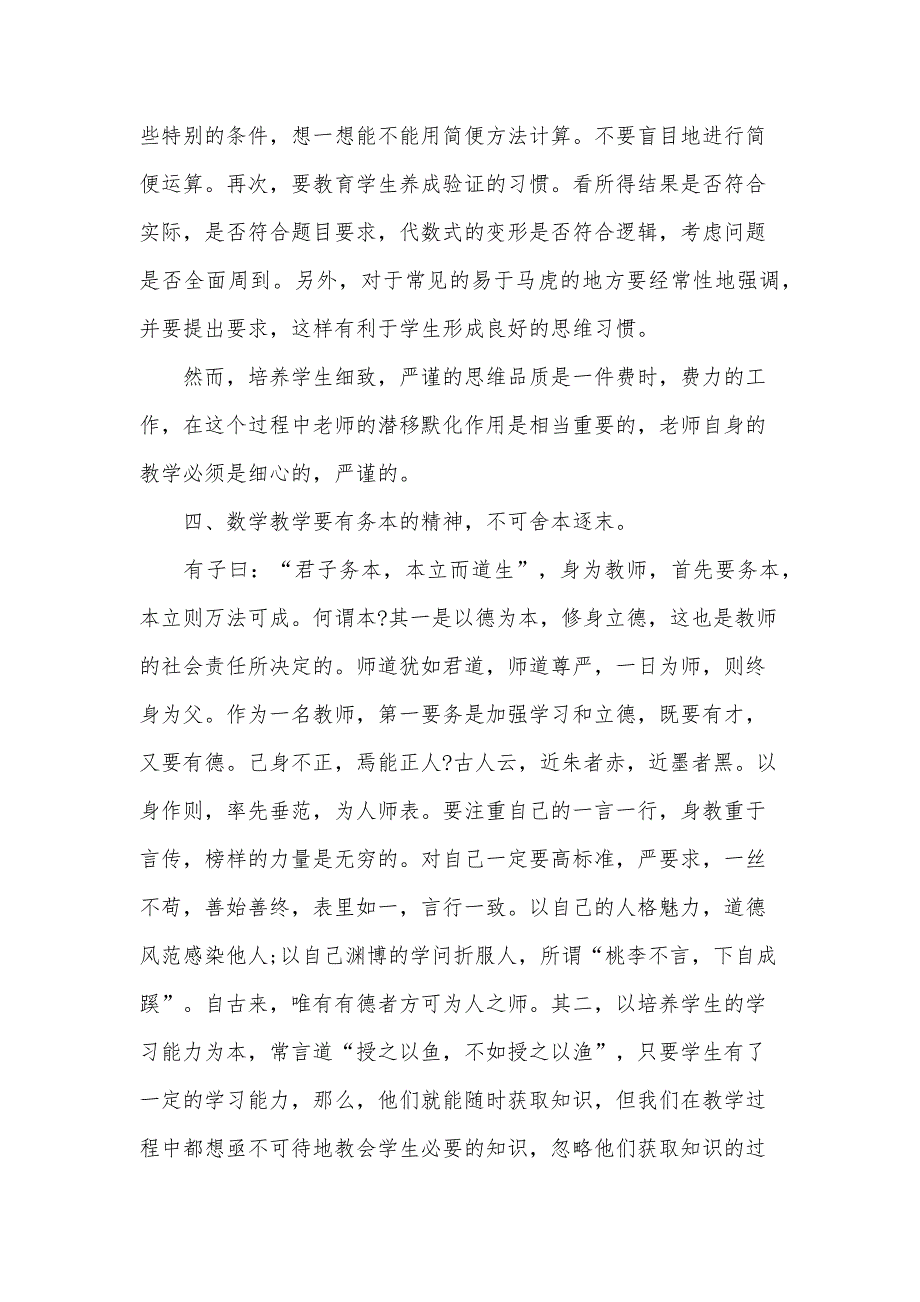 些特别的条件，想一想能不能用简便方法计算。不要盲目地进行简
便运算。再次，要教育学生养成验证的习惯。看所得结果是否符合
实际，是否符合题目要求，代数式的变形是否符合逻辑，考虑问题
是否全面周到。另外，对于常见的易于马虎的地方要经常性地强调，
并要提出要求，这样有利于学生形成良好的思维习惯。
然而，培养学生细致，严谨的思维品质是一件费时，费力的工
作，在这个过程中老师的潜移默化作用是相当重要的，老师自身的
教学必须是细心的，严谨的。
四、数学教学要有务本的精神，不可舍本逐末。
有子曰：“君子务本，本立而道生”，身为教师，首先要务本，
本立则万法可成。何谓本?其一是以德为本，修身立德，这也是教师
的社会责任所决定的。师道犹如君道，师道尊严，一日为师，则终
身为父。作为一名教师，第一要务是加强学习和立德，既要有才，
又要有德。己身不正，焉能正人?古人云，近朱者赤，近墨者黑。以
身作则，率先垂范，为人师表。要注重自己的一言一行，身教重于
言传，榜样的力量是无穷的。对自己一定要高标准，严要求，一丝
不苟，善始善终，表里如一，言行一致。以自己的人格魅力，道德
风范感染他人;以自己渊博的学问折服人，所谓“桃李不言，下自成
蹊”。自古来，唯有有德者方可为人之师。其二，以培养学生的学
习能力为本，常言道“授之以鱼，不如授之以渔”，只要学生有了
一定的学习能力，那么，他们就能随时获取知识，但我们在教学过
程中都想亟不可待地教会学生必要的知识，忽略他们获取知识的过